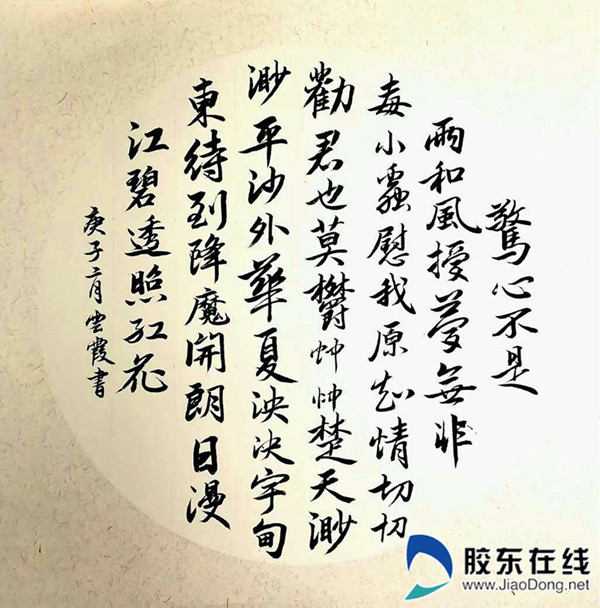 驚心不是
雨和風擾夢無非
毒小蟲慰我原知情切切
勸君也莫鬱忡忡楚天渺
渺平沙外華夏泱泱宇甸
東待到降魔開朗日漫
江碧透照紅花
庚子二月雲霞書
胶东在线
www.JiaoDong.net